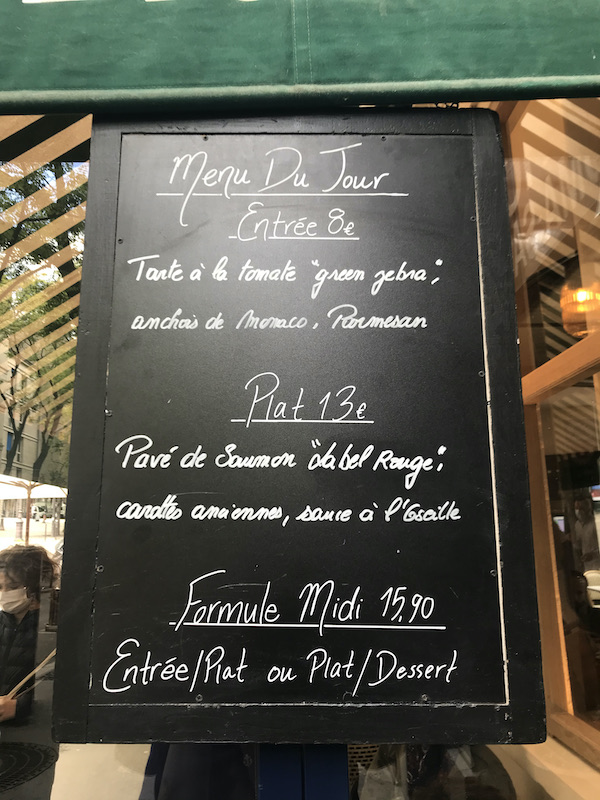 Menu Du Jour
Entrée 8€
Tarte à la tomate "green zebra",
anchois de Monaco, Parmesan
Plat 13€
Pavé de Saumon "Label Rouge",
carottes anciennes, sauce à l'Oseille
Formule Midi 15,90
Entrée/Plat ou Plat/Dessert